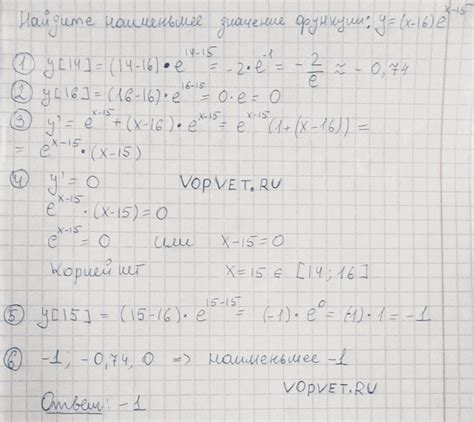 Найдите наименьшее значение функции: y=(x-16)e^{x-15}
① y[14] = (14-16)•e^{14-15} = -2•e^{-1} = -\frac{2}{e} ≈ -0,74
② y[16] = (16-16)•e^{16-15} = 0•e = 0
③ y' = e^{x-15} + (x-16)•e^{x-15} = e^{x-15} (1+(x-16)) =
= e^{x-15}•(x-15)
④ y' = 0 VOPVET.RU
e^{x-15}•(x-15) = 0
e^{x-15} = 0 или x-15=0
Корней нет x=15 ∈ [14;16]
⑤ y[15] = (15-16)•e^{15-15} = (-1)•e^0 = (-1)•1 = -1
⑥ -1, -0,74, 0 => наименьшее -1
VOPVET.RU
Ответ: -1